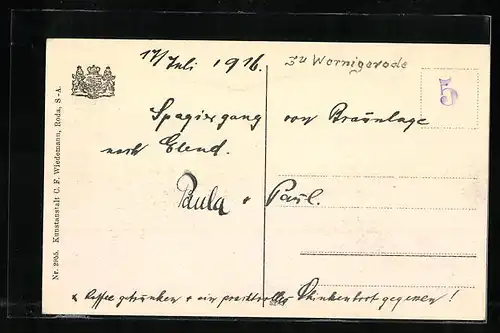 17/ Juli 1916.
zu Wornigerode
5
Spaziergang von Braunlage
nach Elend.
Paula + Paul.
+ Kaffee getrunken + ein prachtvolles Schinkenbrot gegessen!
Nr. 2955. Kunstanstalt C. F. Wiedemann, Roda, S.-A.